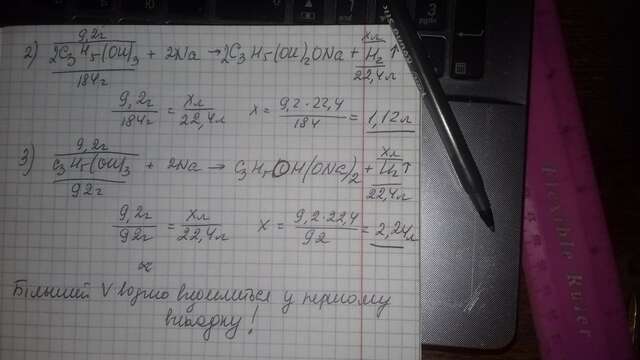 9,2г хл
2) 2C₃H₅(OH)₃ + 2Na → 2C₃H₅(OH)₂ONa + H₂↑
184г 22,4л
9,2г/184г = хл/22,4л x = 9,2·22,4/184 = 1,12л
9,2г хл
3) C₃H₅(OH)₃ + 2Na → C₃H₅OH(ONa)₂ + H₂↑
92г 22,4л
9,2г/92г = хл/22,4л x = 9,2·22,4/92 = 2,24л
Більший V водню виділиться у першому
випадку!
Flexible Ruler